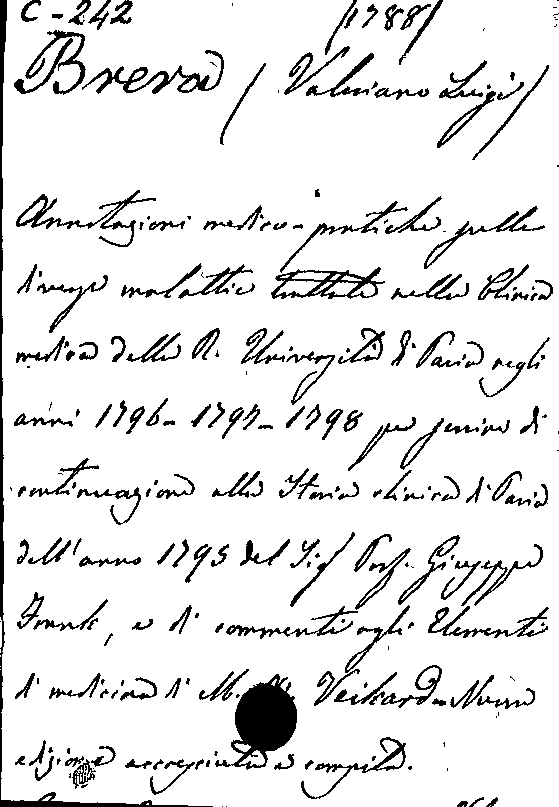 C-242 /1788/
Brera / Valeriano Luigi /
Annotazioni medico-pratiche sulle
diverse malattie trattate nella Clinica
medica della R. Università di Pavia negli
anni 1796-1797-1798 per servire di
continuazione alla Storia clinica di Pavia
dell'anno 1795 del Sig. Prof. Giuseppe
Frank, e di commento agli Elementi
di medicina di M. Veikard - Nuova
edizione accresciuta e compita.